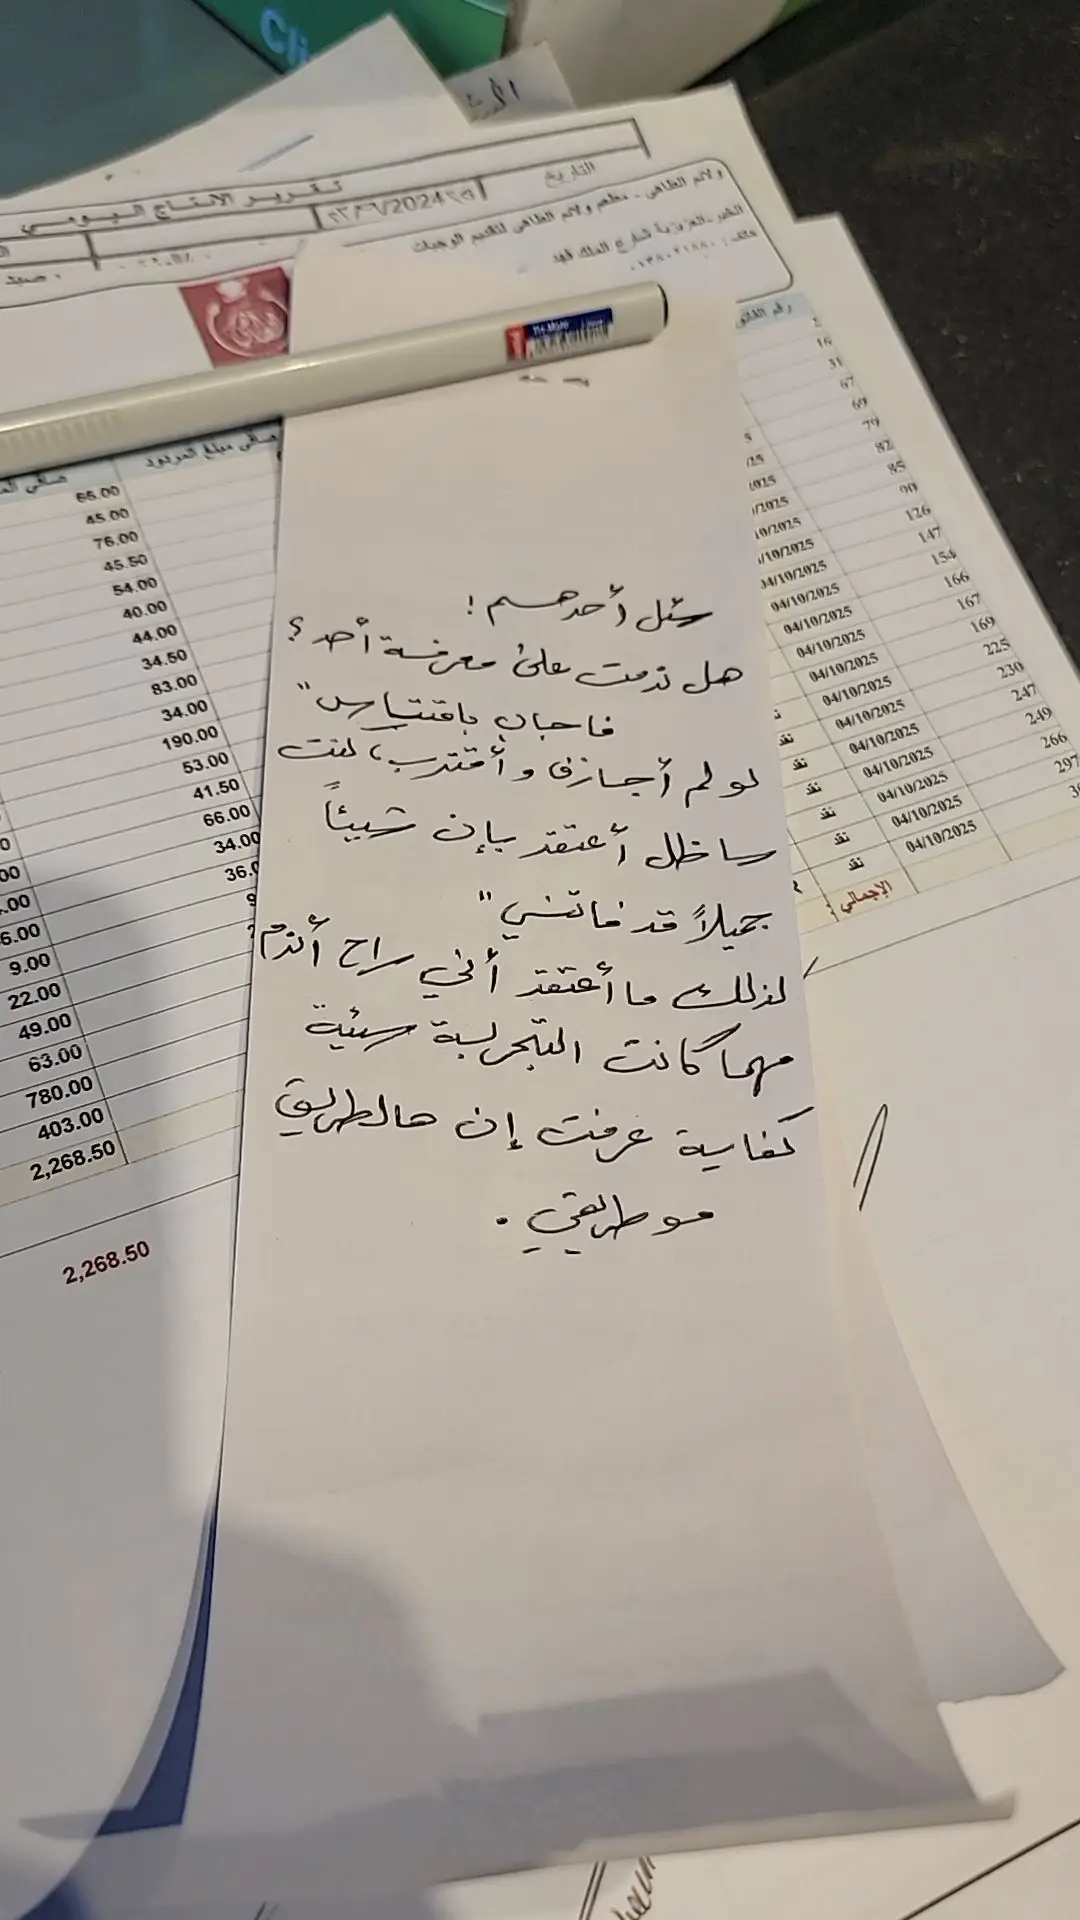 Cli
تقرير الانتاج اليومي
التاريخ
ولائم الطاهي - مطعم ولائم الطاهي لتقديم الوجبات
الخبر - العزيزية شارع الملك فهد
صافي مبلغ المردود
65.00
45.00
76.00
45.50
54.00
40.00
44.00
34.50
83.00
34.00
190.00
53.00
41.50
66.00
34.00
9.00
22.00
49.00
63.00
780.00
403.00
2,268.50
2,268.50
سئل أحدهم :
هل ندمت على معرفة أحد ؟
فاجاب باقتباس "
لو لم أجازف وأقترب، لكنت
ساظل أعتقد بإن شيئاً
جميلاً قد فاتني "
لذلك ما أعتقد أني راح أندم
مهما كانت التجربة سيئة
كفاية عرفت إن هالطريق
مو طريقي .
رقم الفاتو
16
31
67
69
79
82
85
90
126
147
154
166
167
169
225
230
247
249
266
297
04/10/2025
04/10/2025
04/10/2025
04/10/2025
04/10/2025
04/10/2025
04/10/2025
04/10/2025
04/10/2025
04/10/2025
04/10/2025
نقد
نقد
نقد
نقد
نقد
الإجمالي :